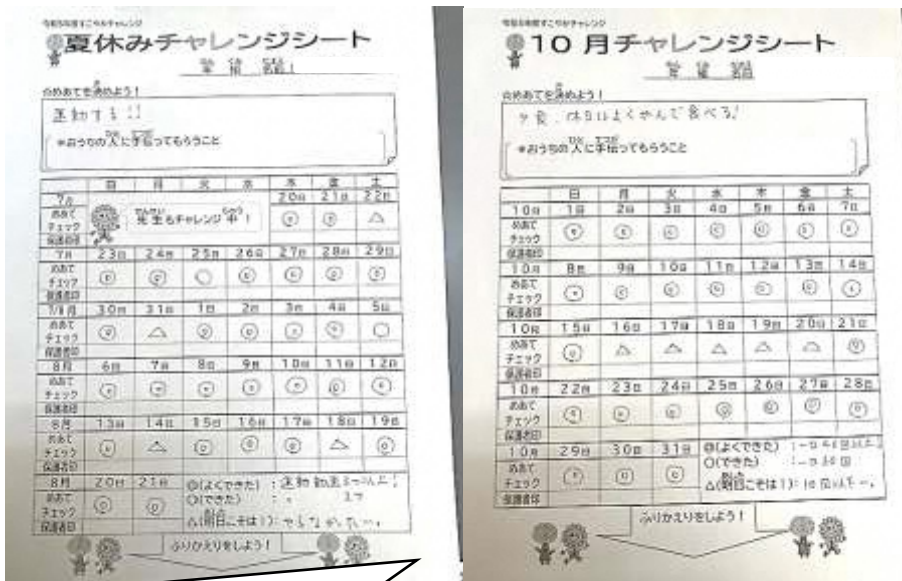 令和5年度すこやかチャレンジ
夏休みチャレンジシート
年 組 名前
☆めあてを決めよう！
運動する!!
*おうちの人に手伝ってもらうこと
日 月 火 水 木 金 土
7月 20日 21日 22日
めあて
チェック
先生もチャレンジ中！
保護者印
7月 23日 24日 25日 26日 27日 28日 29日
めあて
チェック
保護者印
7/8月 30日 31日 1日 2日 3日 4日 5日
めあて
チェック
保護者印
8月 6日 7日 8日 9日 10日 11日 12日
めあて
チェック
保護者印
8月 13日 14日 15日 16日 17日 18日 19日
めあて
チェック
保護者印
8月 20日 21日
めあて
チェック
保護者印
◎(よくできた)：運動
○(できた)：
△(明日こそは！)：
ふりかえりをしよう！
令和5年度すこやかチャレンジ
10月チャレンジシート
年 組 名前
☆めあてを決めよう！
夕食、休日はよくかんで食べる！
*おうちの人に手伝ってもらうこと
日 月 火 水 木 金 土
10月 1日 2日 3日 4日 5日 6日 7日
めあて
チェック
保護者印
10月 8日 9日 10日 11日 12日 13日 14日
めあて
チェック
保護者印
10月 15日 16日 17日 18日 19日 20日 21日
めあて
チェック
保護者印
10月 22日 23日 24日 25日 26日 27日 28日
めあて
チェック
保護者印
10月 29日 30日 31日
めあて
チェック
保護者印
◎(よくできた)：一口
○(できた)：一口30回
△(明日こそは！)：10回以下
ふりかえりをしよう！